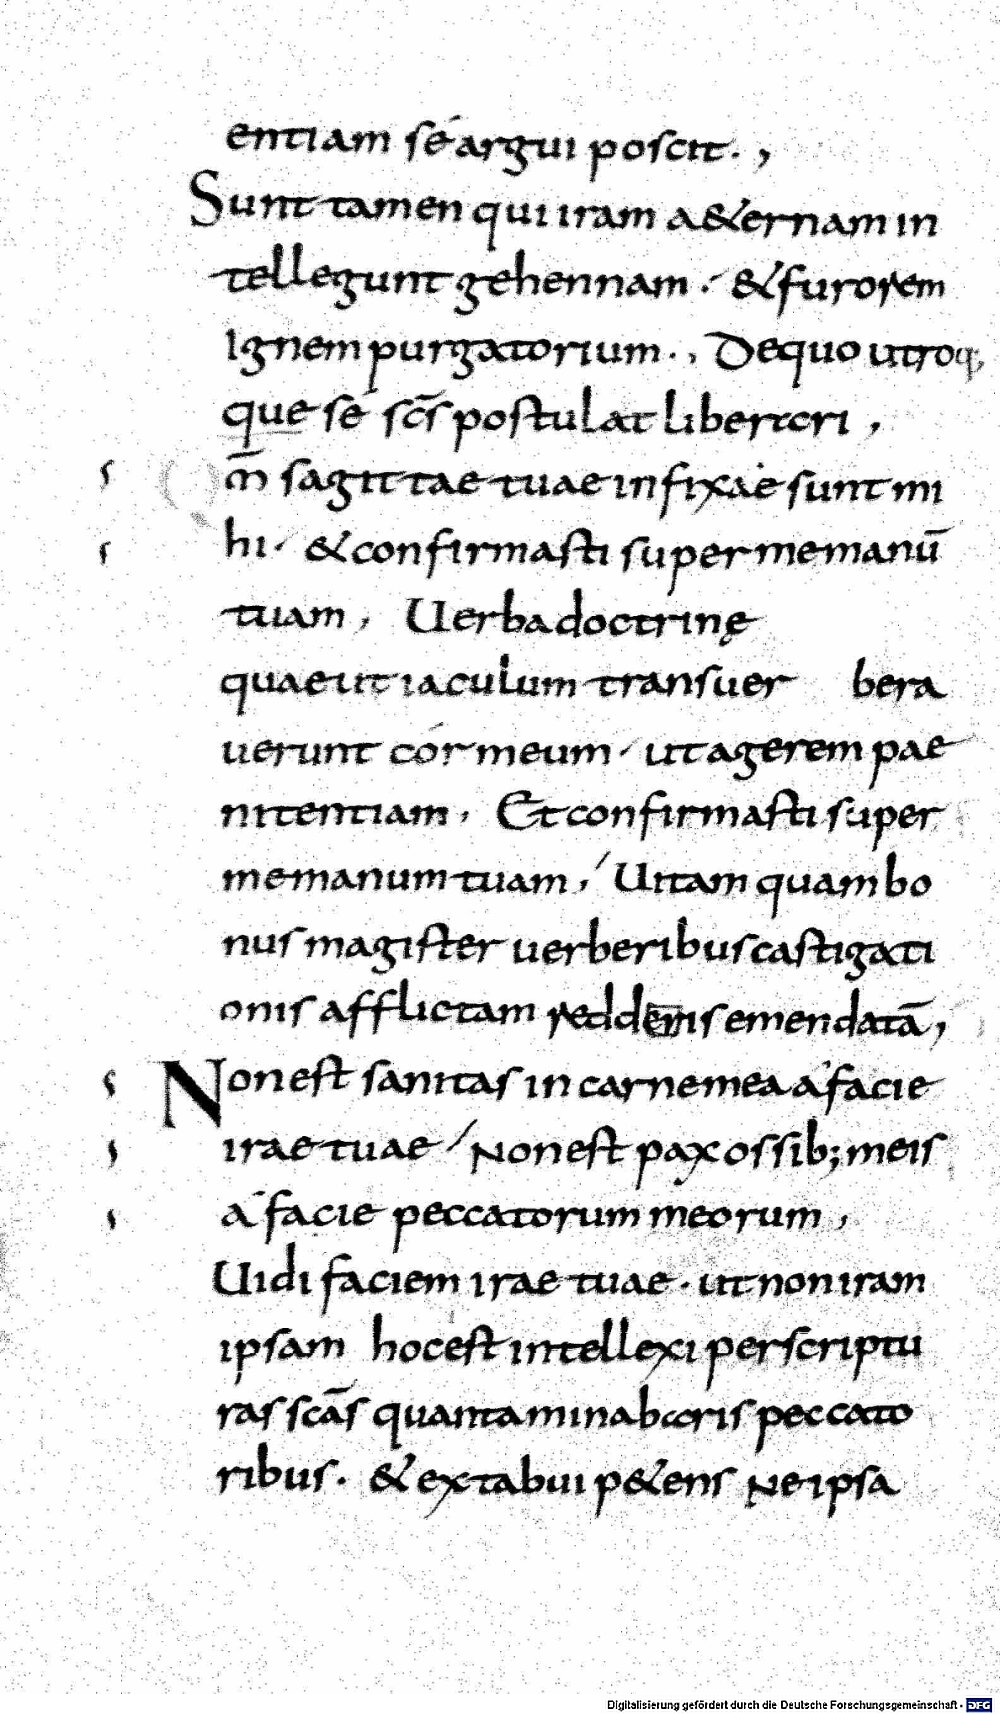 entiam sé argui poscit.,
Sunt tamen qui iram a&ernam in
tellegunt gehennam. &furorem
Ignem purgatorium., Dequo utroq;
que sé scs̄ postulat liberari,
m̄ sagittae tuae infixae sunt mi
hi. & confirmasti super me manū
tuam, Uerba doctrinę
quae ut iaculum transuer bera
uerunt cór meum. ut agerem pae
nitentiam, Et confirmasti super
me manum tuam, Uitam quam bo
nus magister uerberibus castigati
onis afflictam emendatā,
Non est sanitas in carne mea a facie
irae tuae / Non est pax ossib; meis
a facie peccatorum meorum,
Uidi faciem irae tuae. ut non iram
ipsam hoc est intellexi per scriptu
ras scās quanta minaberis pecca to
ribus. & extabui p&ens Ne ipsa
Digitalisierung gefördert durch die Deutsche Forschungsgemeinschaft - DFG